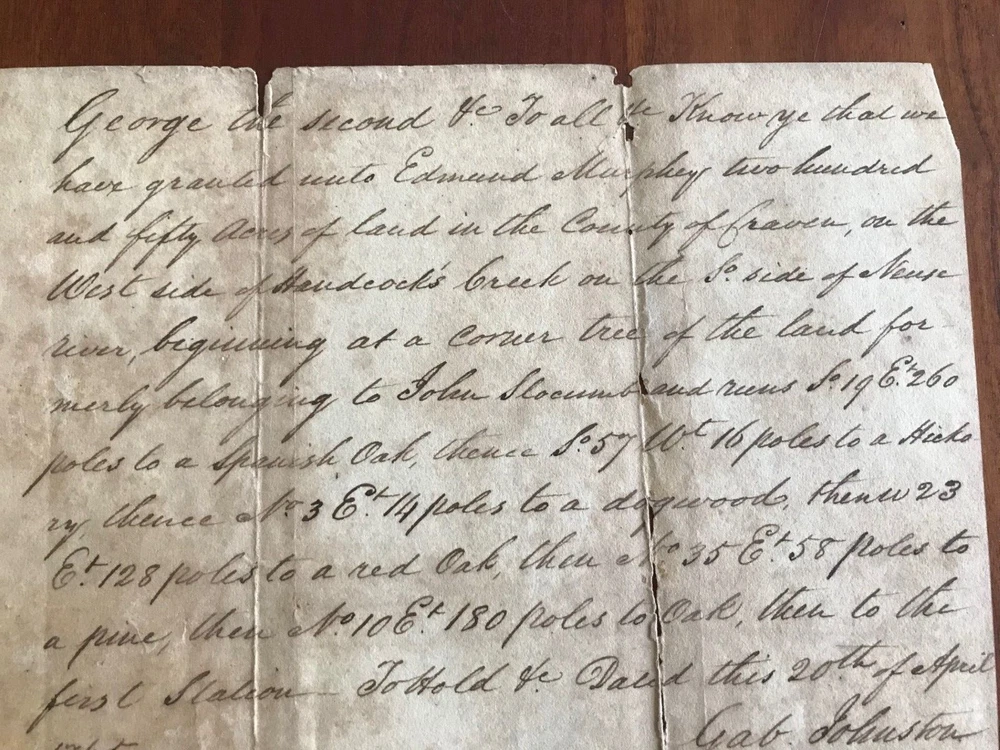 George the second &c To all &c Know ye that we
have granted unto Edmund Murphey two hundred
and fifty Acres of land in the County of Craven, on the
West side of Handcock's Creek on the So side of Neuse
river, beginning at a corner tree of the land for
merly belonging to John Slocumb and runs So 19 Et. 260
poles to a Spanish Oak, thence So 57 Wt 16 poles to a Hicko
ry, thence No 3 Et. 14 poles to a dogwood, thence 23
Et. 128 poles to a red Oak, then No 35 Et 58 poles to
a pine, then No 10 Et. 180 poles to Oak, then to the
first Station To Hold &c Dated this 20th of April
Gab. Johnston